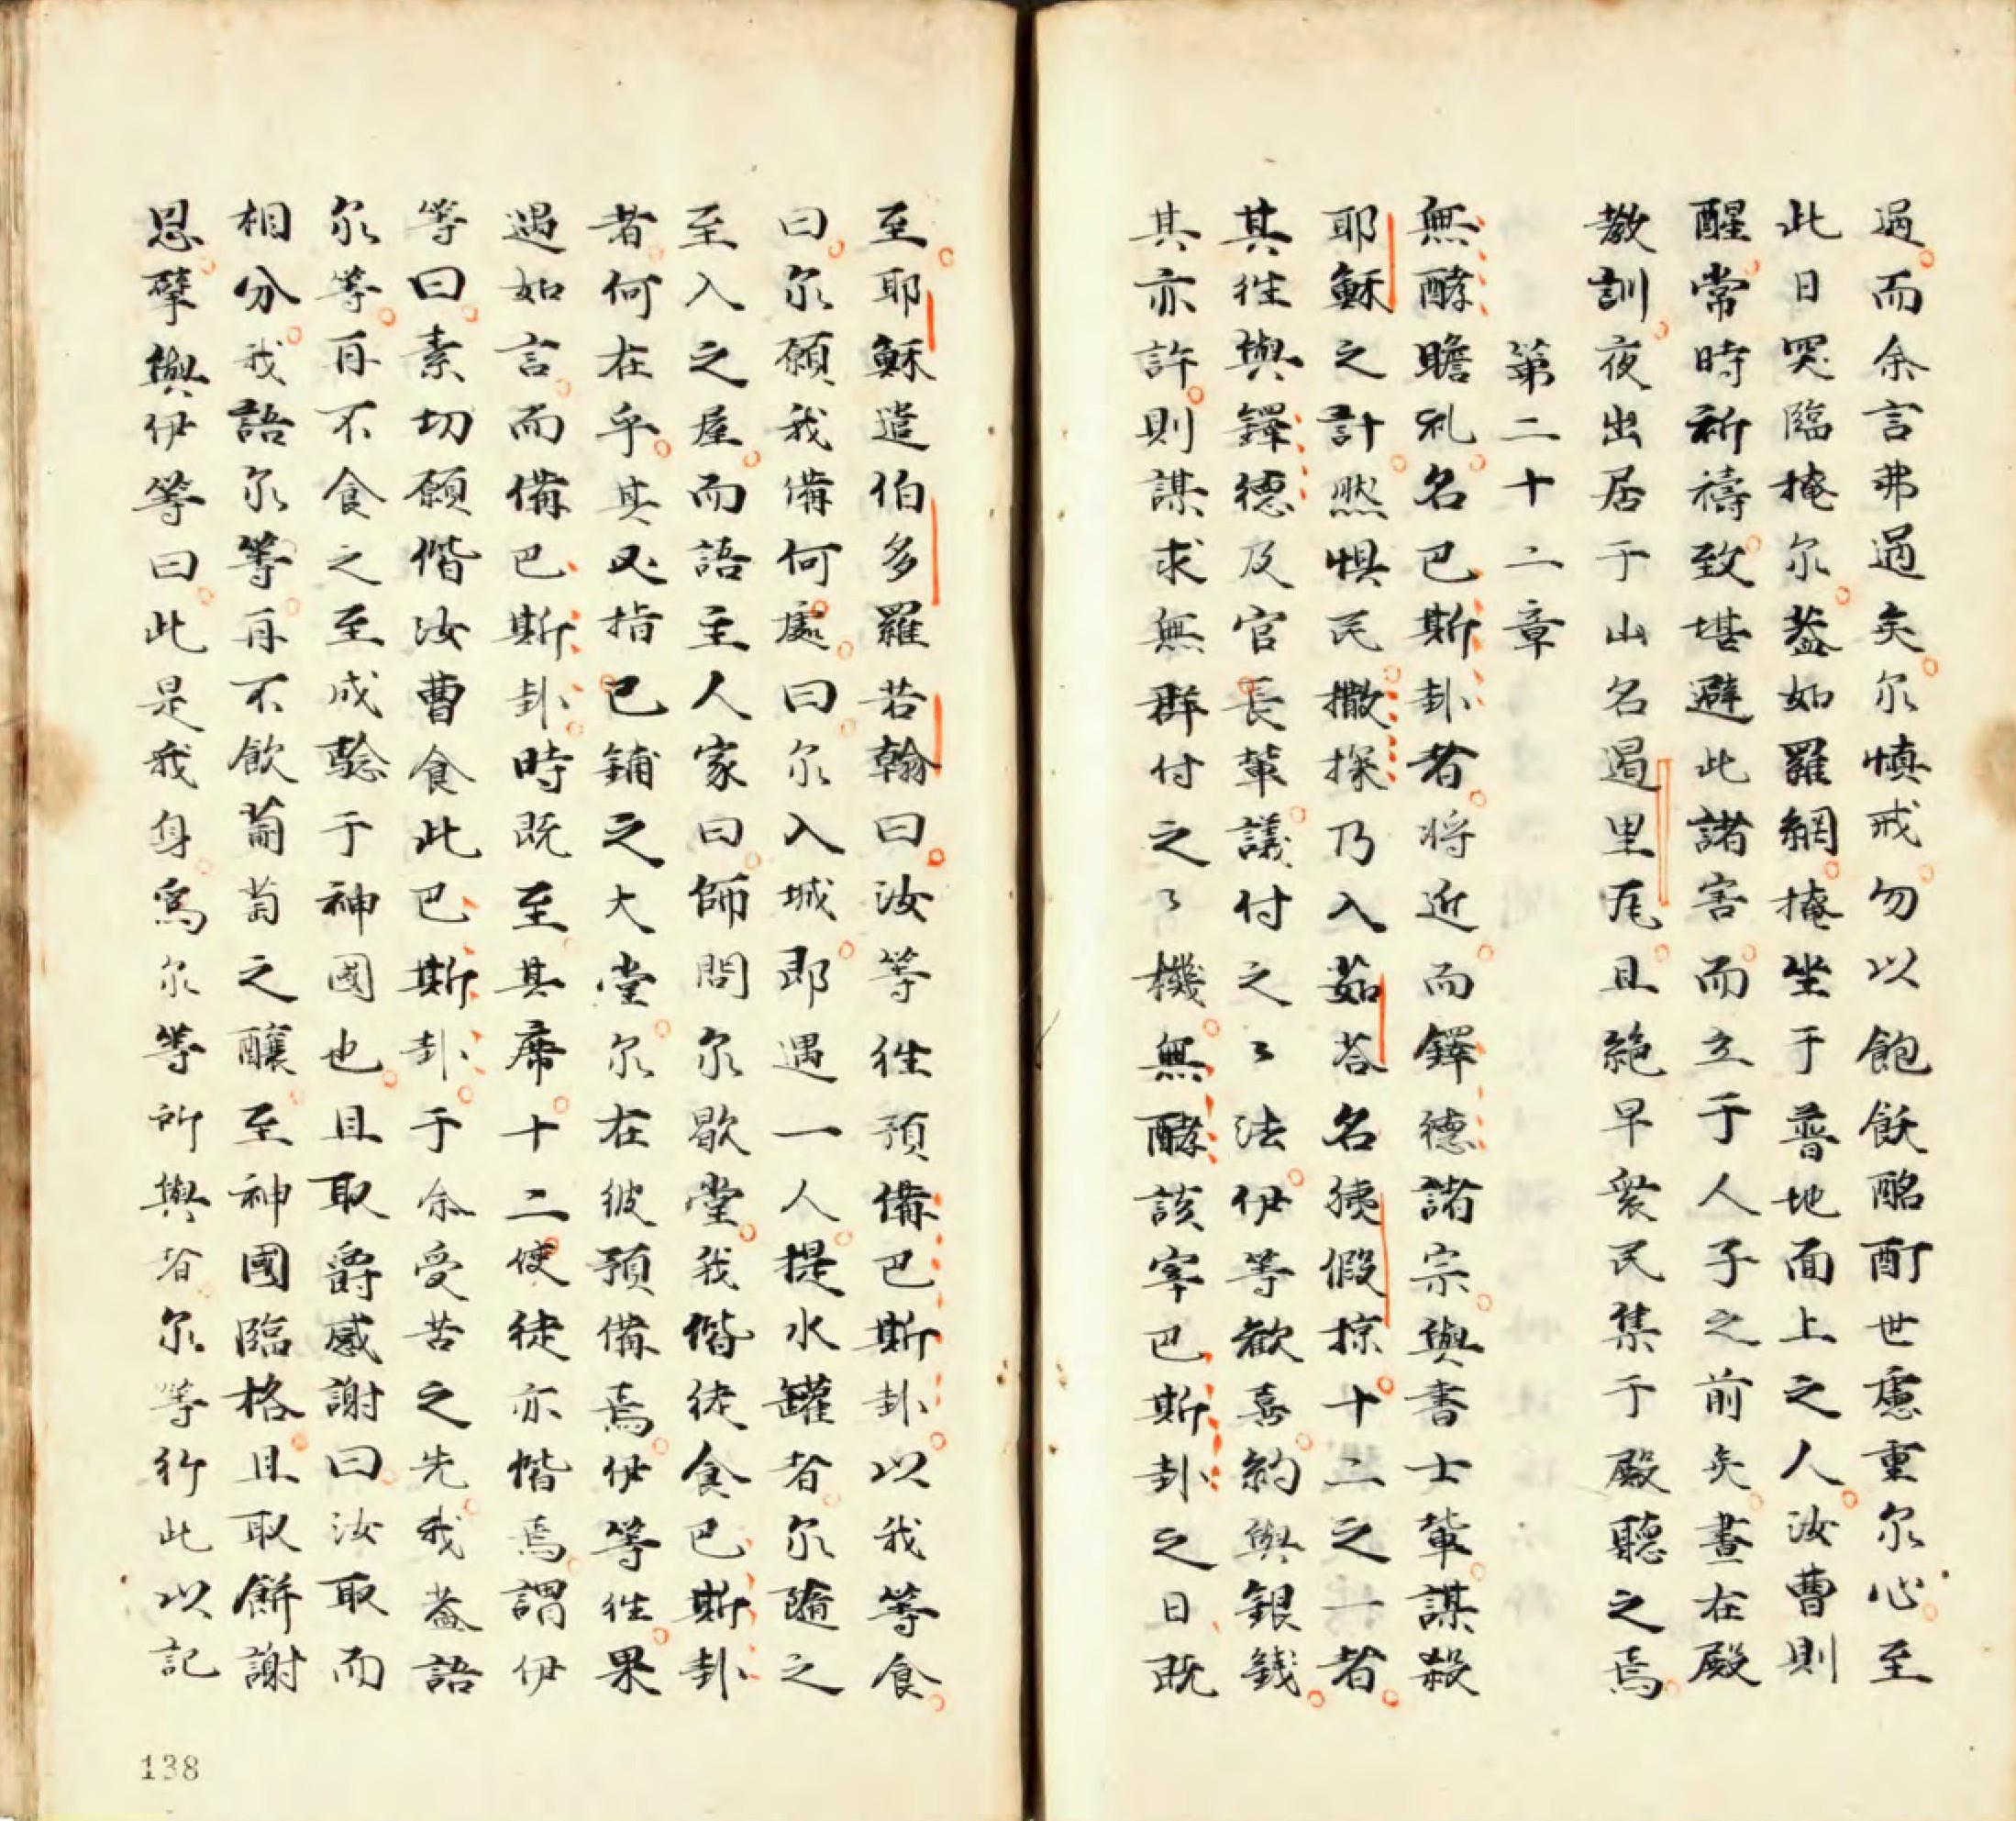 過而余言弗過矣尔慎戒勿以飽飫酩酊世慮重尔心至
此日突臨掩尔葢如羅網掩坐于普地面上之人汝曹則
醒常時祈禱致堪避此諸害而立于人子之前矣晝在殿
教訓夜出居于山名遏里尾且絕早衆民集于殿聽之焉
第二十二章
無酵瞻礼名巴斯卦者将近而鐸德諸宗與書士輩謀殺
耶穌之計然惧民撒探乃入茹荅名穓假掠十二之一者
其徃與鐸德及官長輩議付之〻法伊等歡喜約與銀錢
其亦許則謀求無群付之〻機無酵該宰巴斯卦之日既
至耶穌遣伯多羅若翰曰汝等徃預備巴斯卦以我等食
曰尔願我備何處曰尔入城即遇一人提水罐者尔隨之
至入之屋而語主人家曰師問尔歇堂我偕徒食巴斯卦
者何在乎其必指已鋪之大堂尔在彼預備焉伊等徃果
遇如言而備巴斯卦時既至其席十二使徒亦偕焉謂伊
等曰素切願偕汝曹食此巴斯卦于余受苦之先我葢語
尔等再不食之至成驗于神國也且取爵感謝曰汝取而
相分我語尔等再不飲葡萄之釀至神國臨格且取餅謝
恩擘與伊等曰此是我身為尔等所與者尔等行此以記
138